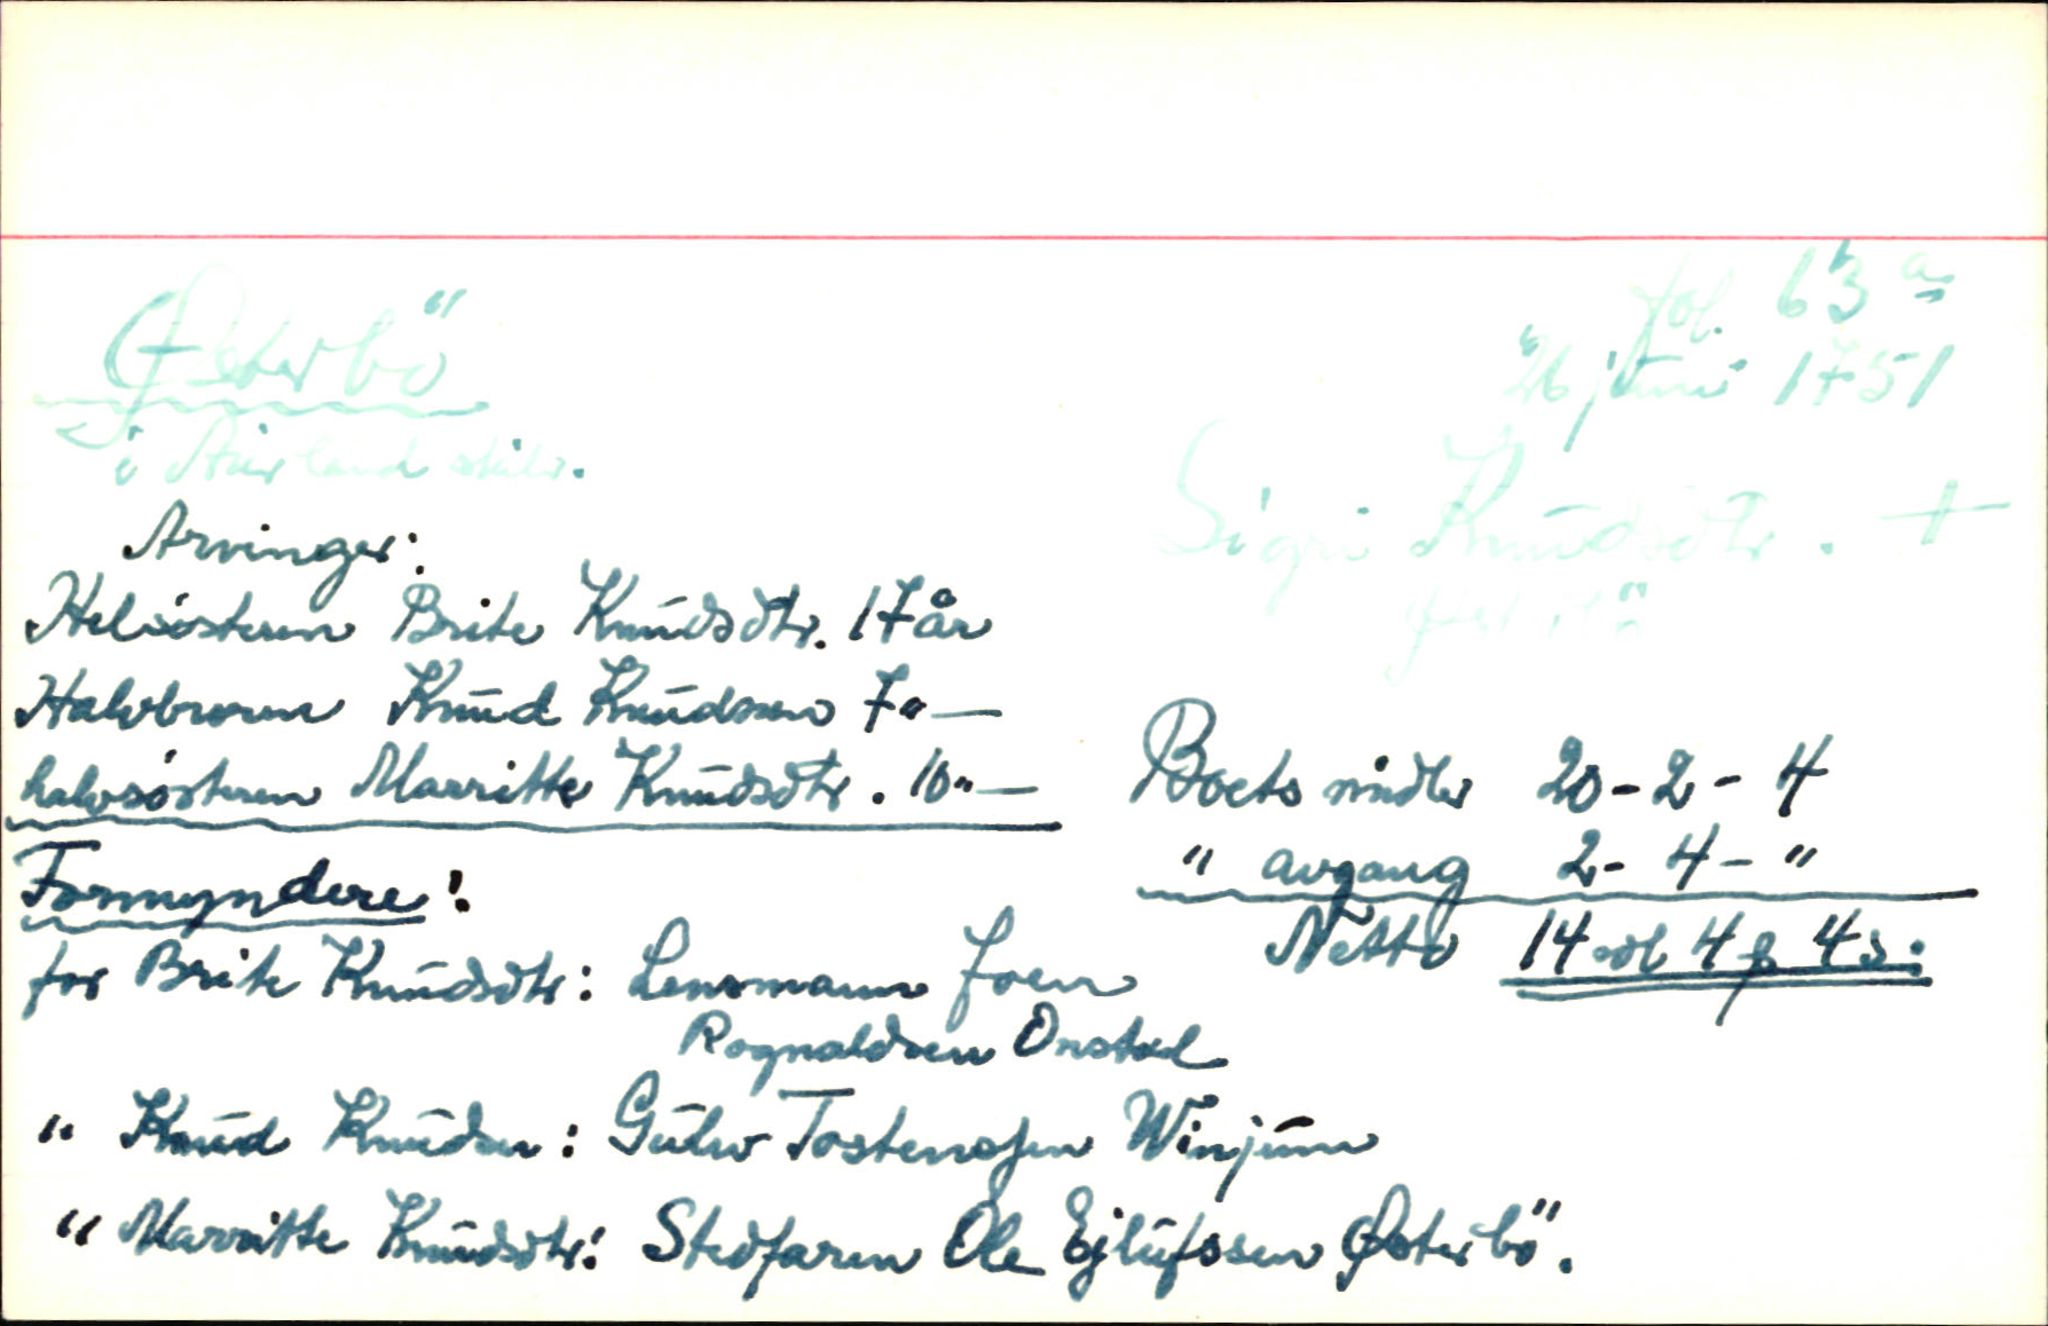 Østerbö
fol. 63 a
26 juni 1751
i Aurland skibr.
Sigri Knudsdtr. +
Arvinger:
Helsösteren Brite Knudsdtr. 17 år
Halvbroren Knud Knudssen 7 " —
halvsösteren Marritte Knudsdtr. 10 " —
Boets midler 20 - 2 - 4
" avgang 2 - 4 - "
Netto 14 rdl 4 ƒ 4 s:
Formyndere:
for Brite Knudsdtr: Lensmann Joen
Rognaldsen Onstad
" Knud Knudsen: Gulv Tostensen Winjum
" Marritte Knudsdtr: Stedfaren Ole Ejlufssen Østerbö.